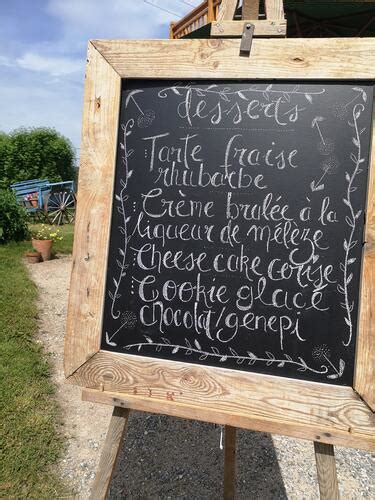 desserts
Tarte fraise
rhubarbe
Crème brulée à la
liqueur de mélèze
Cheese cake cerise
Cookie glacé
chocolat/genepi